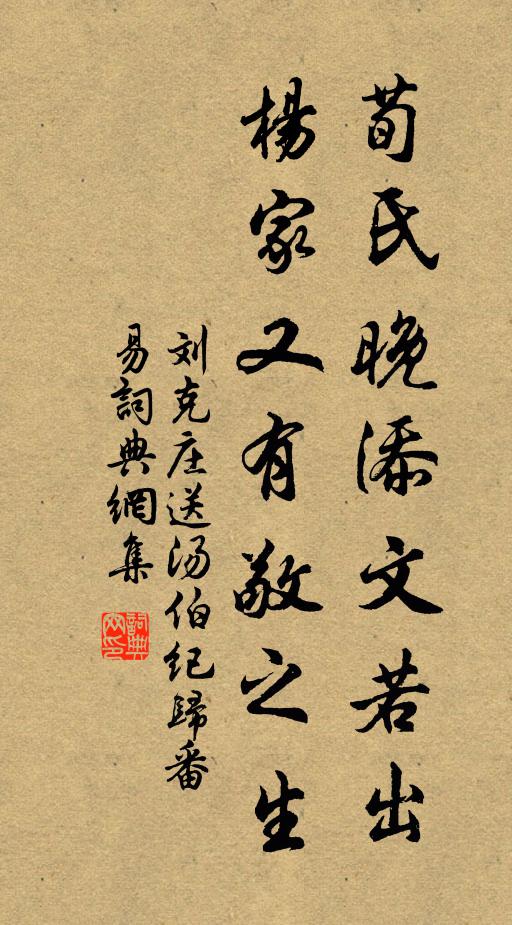 荀氏晚添文若出
楊家又有敬之生
刘克庄送汤伯纪歸番
易詞典網集
詞典網印